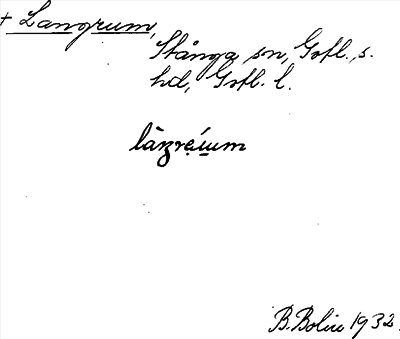 + Langrum,
Stånga sn, Gotl., s.
hd, Gotl. l.
B. Bolin 1932.